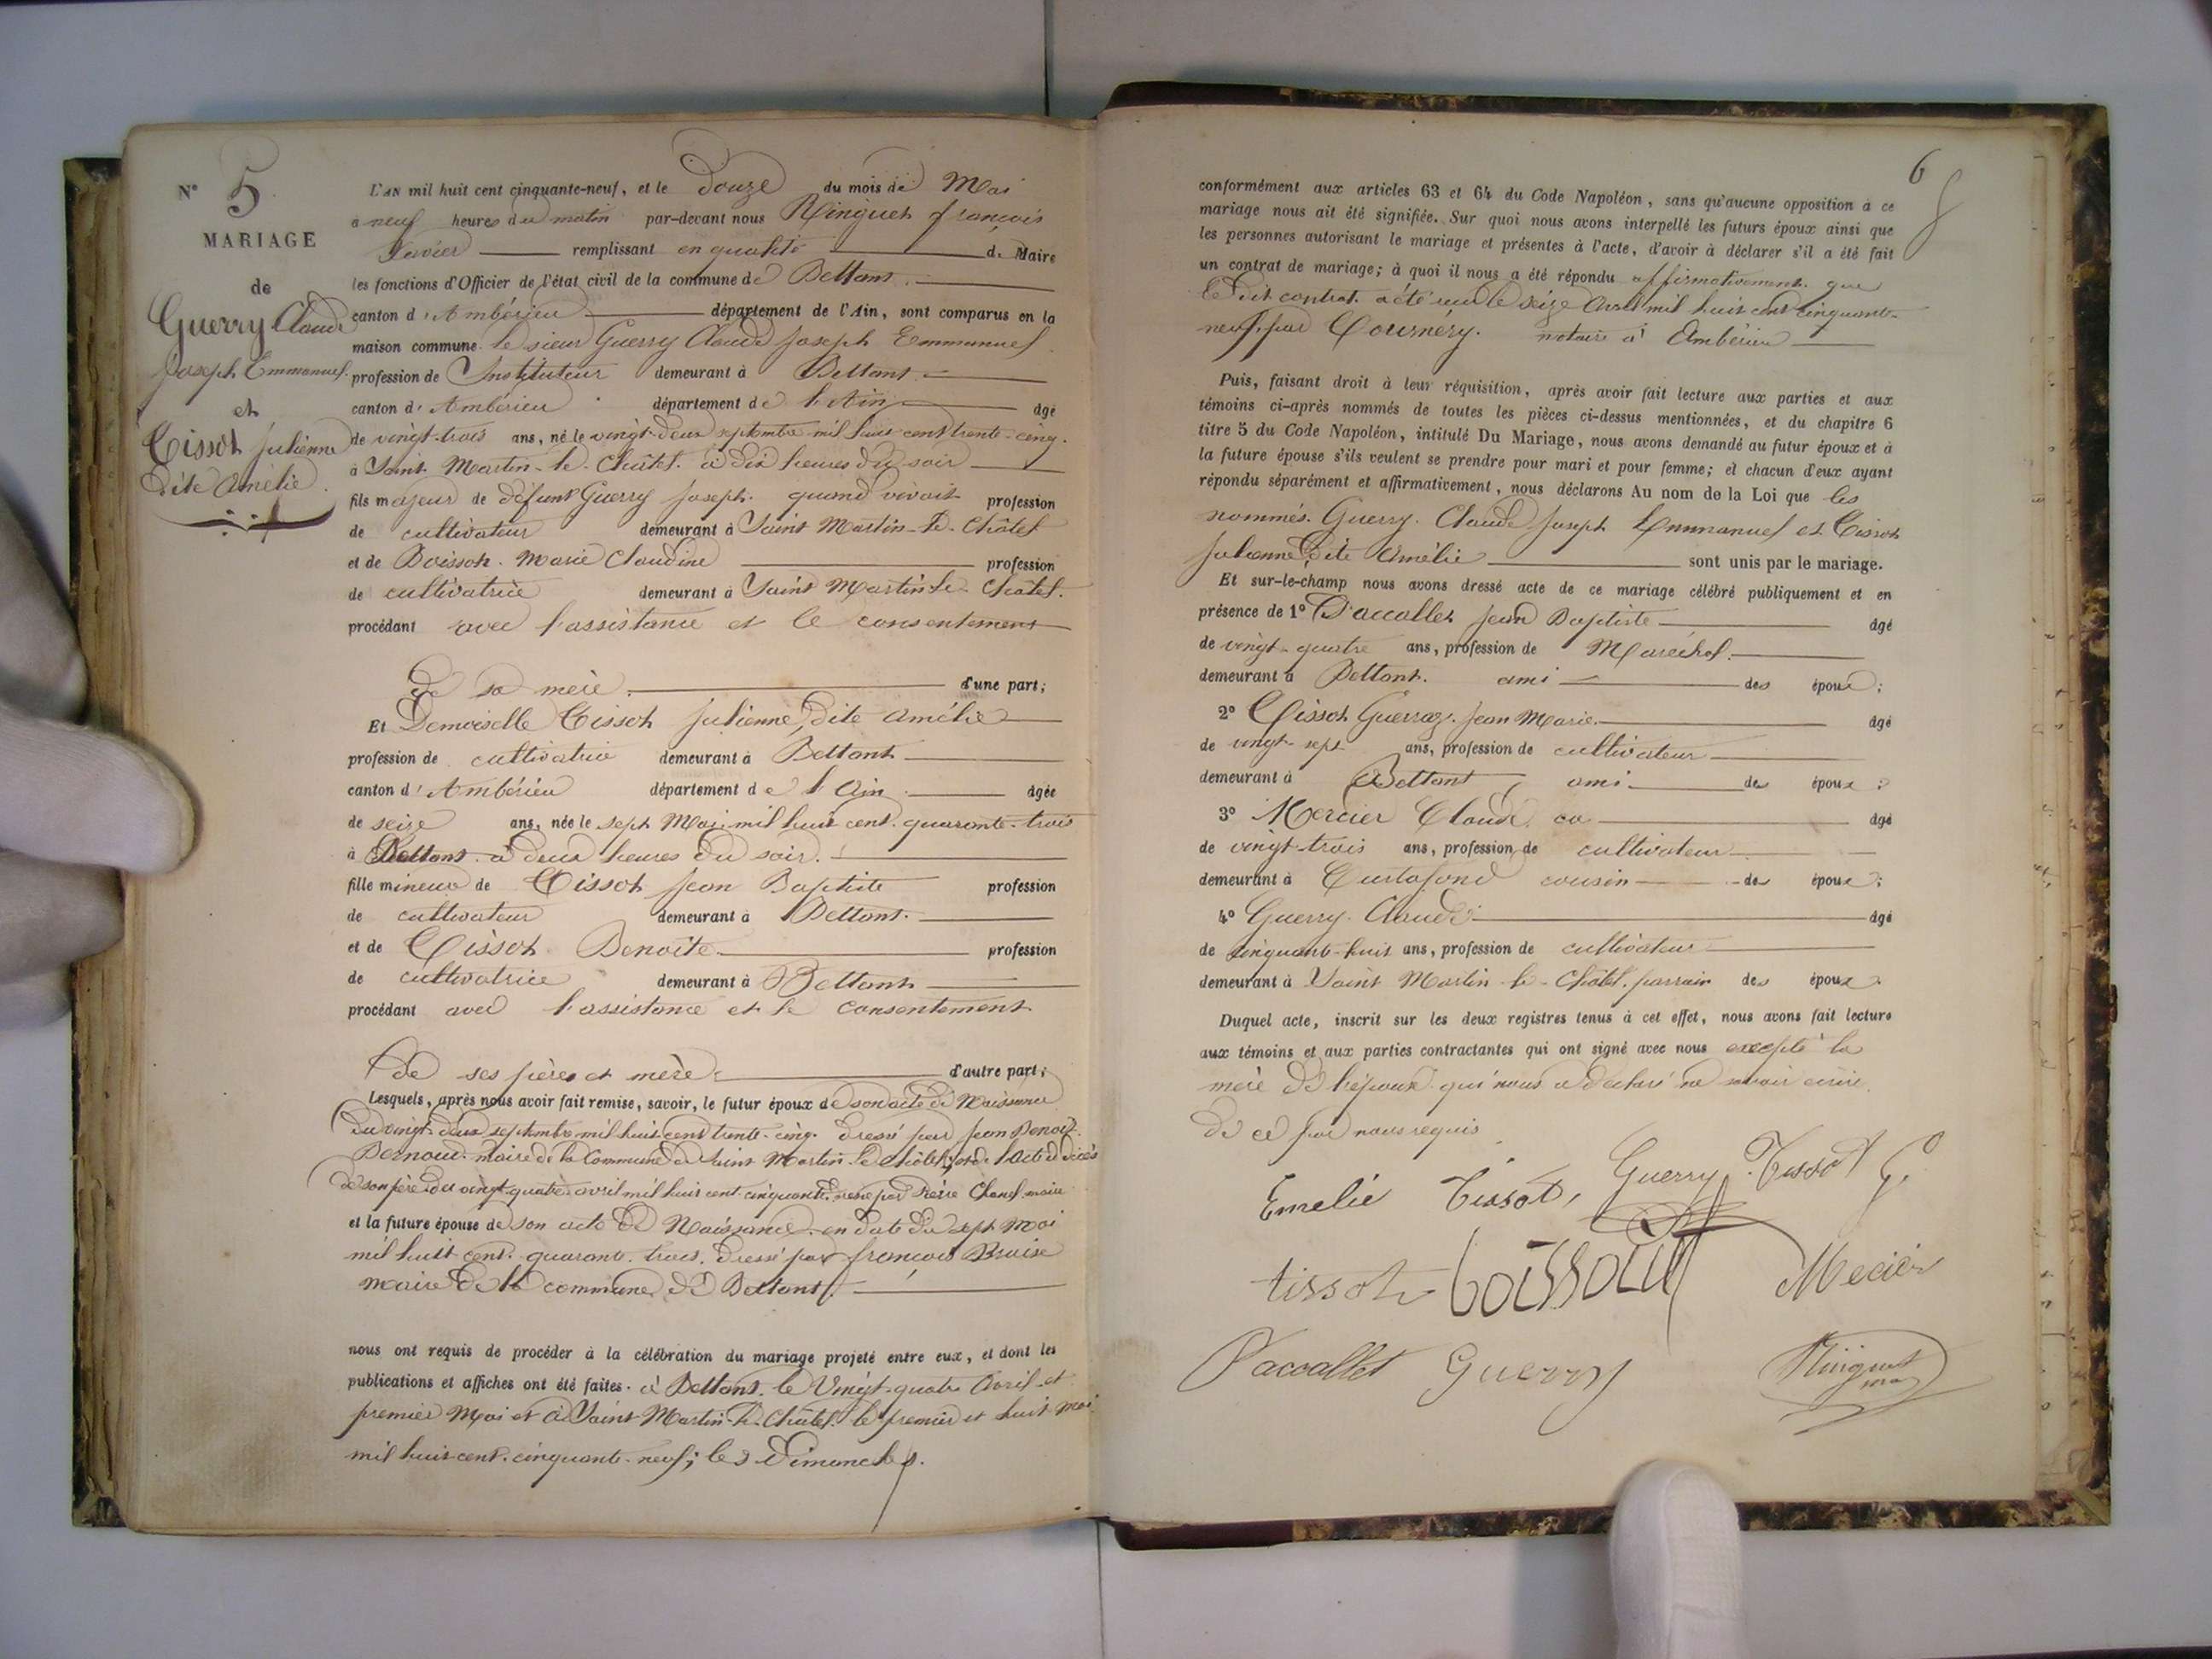 N° 5
MARIAGE
de
Guerry Claude
Joseph Emmanuel
et
Tissot Julienne
dite Amélie
L'AN mil huit cent cinquante-neuf, et le douze du mois de Mai
a neuf heures du matin par-devant nous Ringuet françois
Xavier remplissant en qualité de Maire
les fonctions d'Officier de l'état civil de la commune de Bettant
canton d'Ambérieu département de l'Ain, sont comparus en la
maison commune le sieur Guerry Claude Joseph Emmanuel
profession de Instituteur demeurant à Bettant
canton d'Ambérieu département de l'Ain âgé
de vingt-trois ans, né le vingt-deux septembre mil huit cent trente-cinq
à Saint Martin-le-Châtel à dix heures du soir
fils majeur de défunt Guerry Joseph quand vivait profession
de cultivateur demeurant à Saint Martin-le-Châtel
et de Boissot Marie Claudine profession
de cultivatrice demeurant à Saint Martin le Châtel
procédant avec l'assistance et le consentement
de sa mère d'une part;
Et Demoiselle Tissot Julienne, dite Amélie
profession de cultivatrice demeurant à Bettant
canton d'Ambérieu département de l'Ain âgée
de seize ans, née le sept Mai mil huit cent quarante-trois
à Bettant à deux heures du soir.
fille mineure de Tissot Jean Baptiste profession
de cultivateur demeurant à Bettant
et de Tissot Benoite profession
de cultivatrice demeurant à Bettant
procédant avec l'assistance et le consentement
de ses pères et mère d'autre part;
Lesquels, après nous avoir fait remise, savoir, le futur époux de son acte de Naissance
du vingt-deux septembre mil huit cent trente-cinq dressé par Jean Benoit
maire de la Commune de Saint Martin le Châtel, et de l'acte de décès
de son père du vingt-quatre avril mil huit cent cinquante par Pierre Chanel maire
et la future épouse de son acte de Naissance en date du sept Mai
mil huit cent quarante trois dressé par françois
maire de la commune de Bettant
nous ont requis de procéder à la célébration du mariage projeté entre eux, et dont les
publications et affiches ont été faites à Bettant le Vingt-quatre Avril et
premier Mai et à Saint Martin-le-Châtel le premier et huit mai
mil huit cent cinquante-neuf; les Dimanches.
6
conformément aux articles 63 et 64 du Code Napoléon, sans qu'aucune opposition à ce
mariage nous ait été signifiée. Sur quoi nous avons interpellé les futurs époux ainsi que
les personnes autorisant le mariage et présentes à l'acte, d'avoir à déclarer s'il a été fait
un contrat de mariage; à quoi il nous a été répondu affirmativement que
le dit contrat a été reçu le seize Avril mil huit cent cinquante-
neuf, par Cournéry notaire à Ambérieu
Puis, faisant droit à leur réquisition, après avoir fait lecture aux parties et aux
témoins ci-après nommés de toutes les pièces ci-dessus mentionnées, et du chapitre 6
titre 5 du Code Napoléon, intitulé Du Mariage, nous avons demandé au futur époux et à
la future épouse s'ils veulent se prendre pour mari et pour femme; et chacun d'eux ayant
répondu séparément et affirmativement, nous déclarons Au nom de la Loi que les
nommés Guerry Claude Joseph Emmanuel et Tissot
Julienne dite Amélie sont unis par le mariage.
Et sur-le-champ nous avons dressé acte de ce mariage célébré publiquement et en
présence de 1° Jean Baptiste âgé
de vingt-quatre ans, profession de Maréchal
demeurant à Bettant ami des époux;
2° Tissot Guerraz Jean Marie âgé
de vingt-sept ans, profession de cultivateur
demeurant à Bettant, ami des époux;
3° Mercier Claude âgé
de vingt-trois ans, profession de cultivateur
demeurant à Curtafond cousin des époux;
4° Guerry Claude âgé
de cinquante-huit ans, profession de cultivateur
demeurant à Saint Martin-le-Châtel parrain des époux.
Duquel acte, inscrit sur les deux registres tenus à cet effet, nous avons fait lecture
aux témoins et aux parties contractantes qui ont signé avec nous excepté la
mère de l'époux qui nous a déclaré ne savoir écrire
de ce par nous requis
Emelie Tissot, Guerry Tissot G.
tissot Mecier
Guerry Ringuet